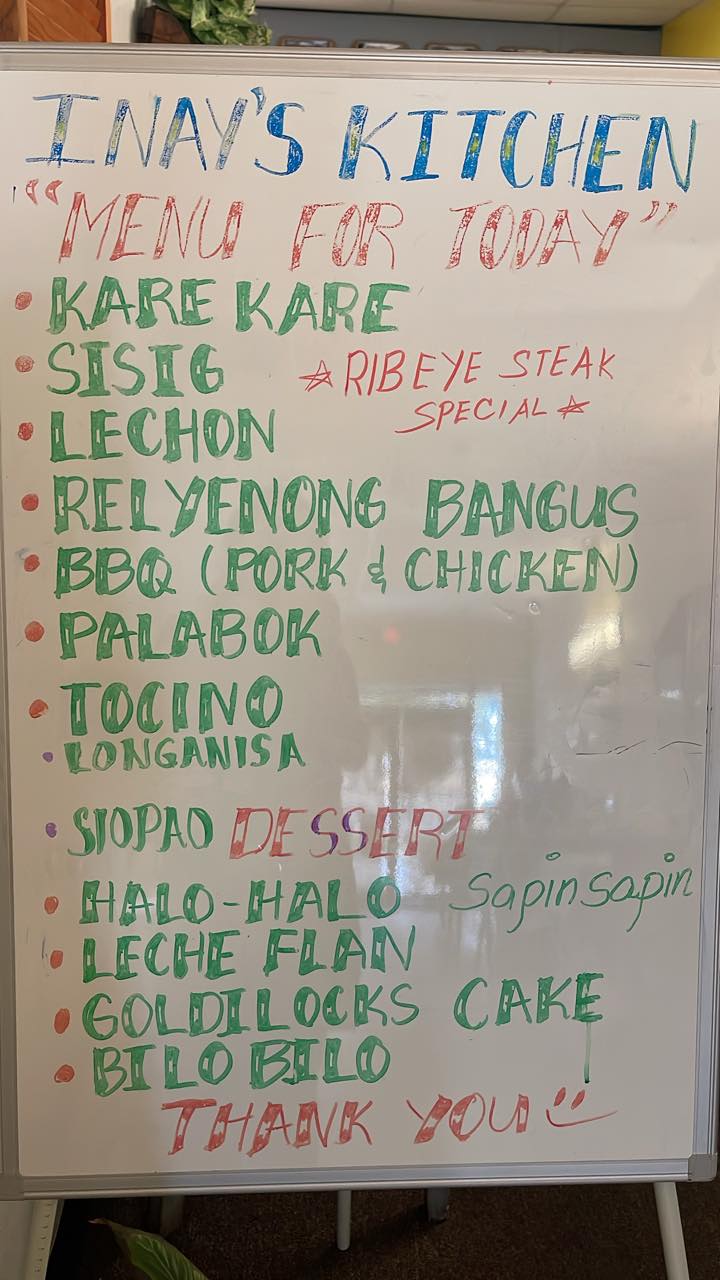 INAY'S KITCHEN
"MENU FOR TODAY"
KARE KARE
SISIG
☆ RIBEYE STEAK
SPECIAL ☆
LECHON
RELYENONG BANGUS
BBQ (PORK & CHICKEN)
PALABOK
TOCINO
LONGANISA
SIOPAO
DESSERT
HALO-HALO
Sapin Sapin
LECHE FLAN
GOLDILOCKS CAKE
BILO BILO
THANK YOU